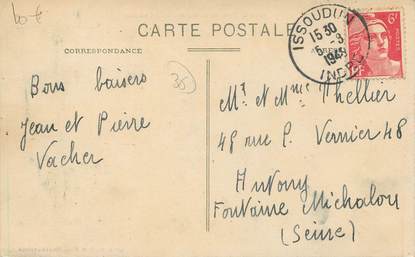 10 €
CARTE POSTALE
CORRESPONDANCE
ISSOUDUN
15 30
6 - 3
1948
INDRE
6F
POSTES
35
Bons baisers
Jean et Pierre
Vacher
Mr et Mme Thellier
48 rue P. Vernier 48
Antony
Fontaine Michalon
(Seine)